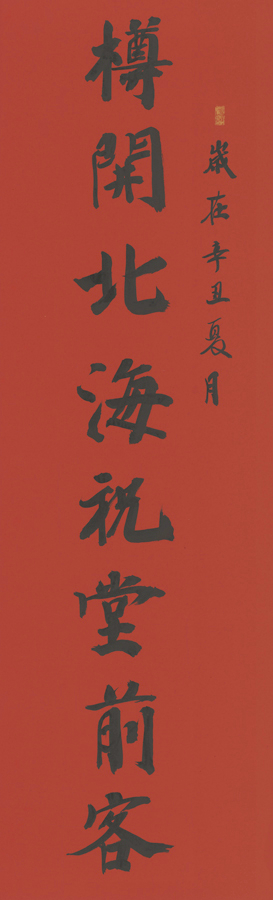 歲在辛丑夏月
樽開北海祝堂前客